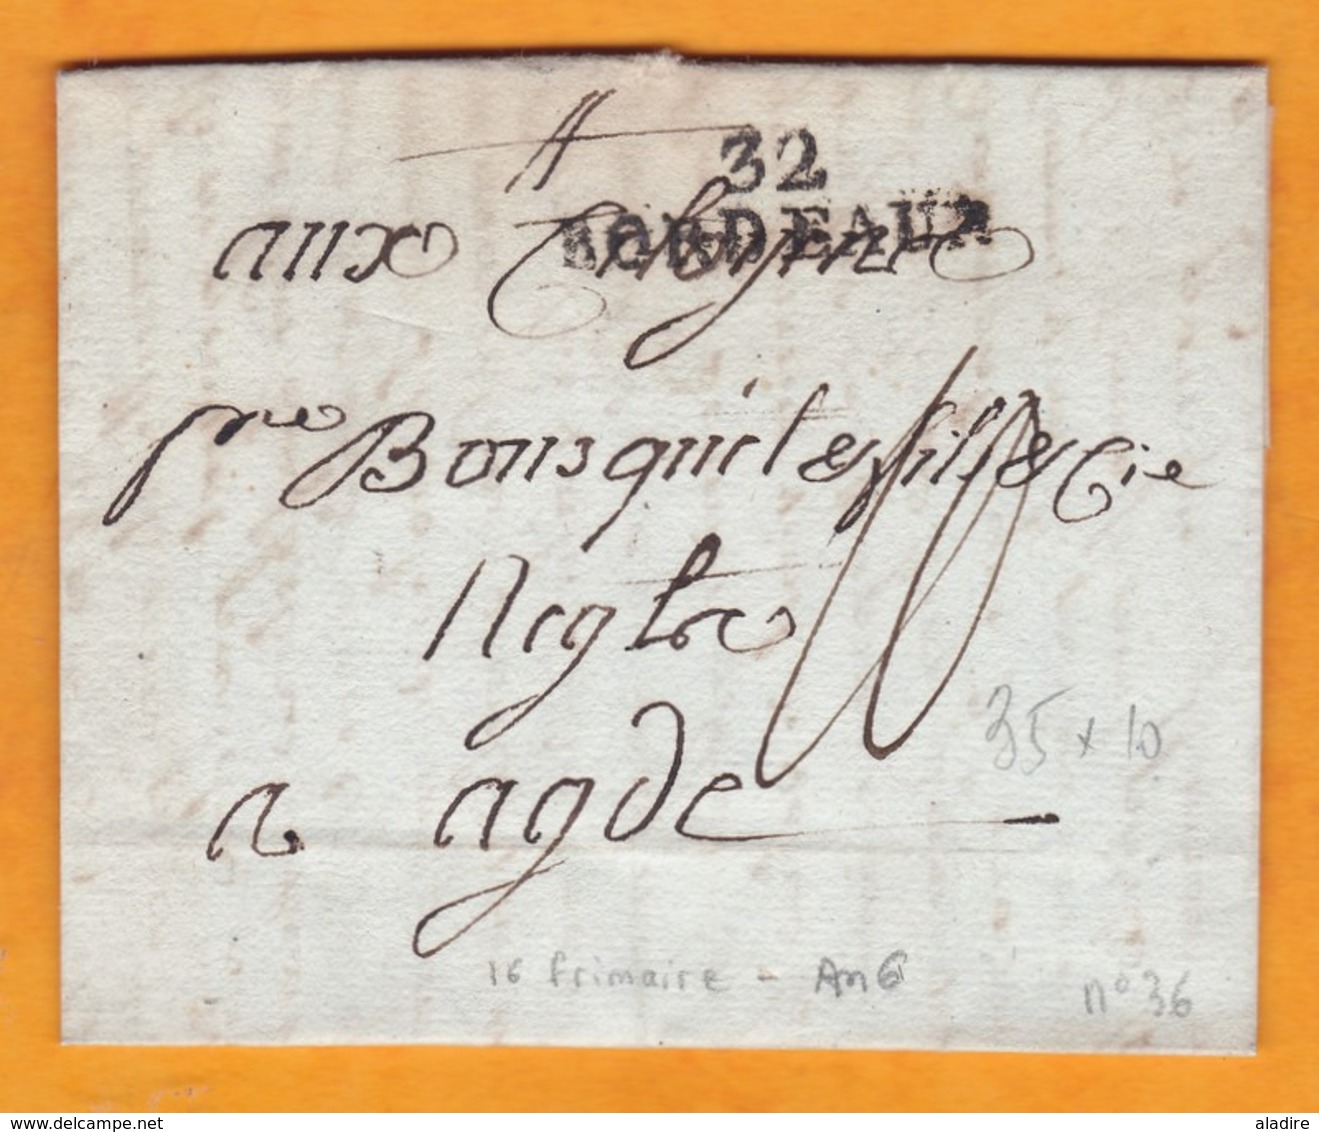 32
BORDEAUX
aux Citoyens
pre Bousquet & fils & Cie
Negts
a agde
35 x 10
16 frimaire - An 6
n° 36
www.delcampe.net
aladire